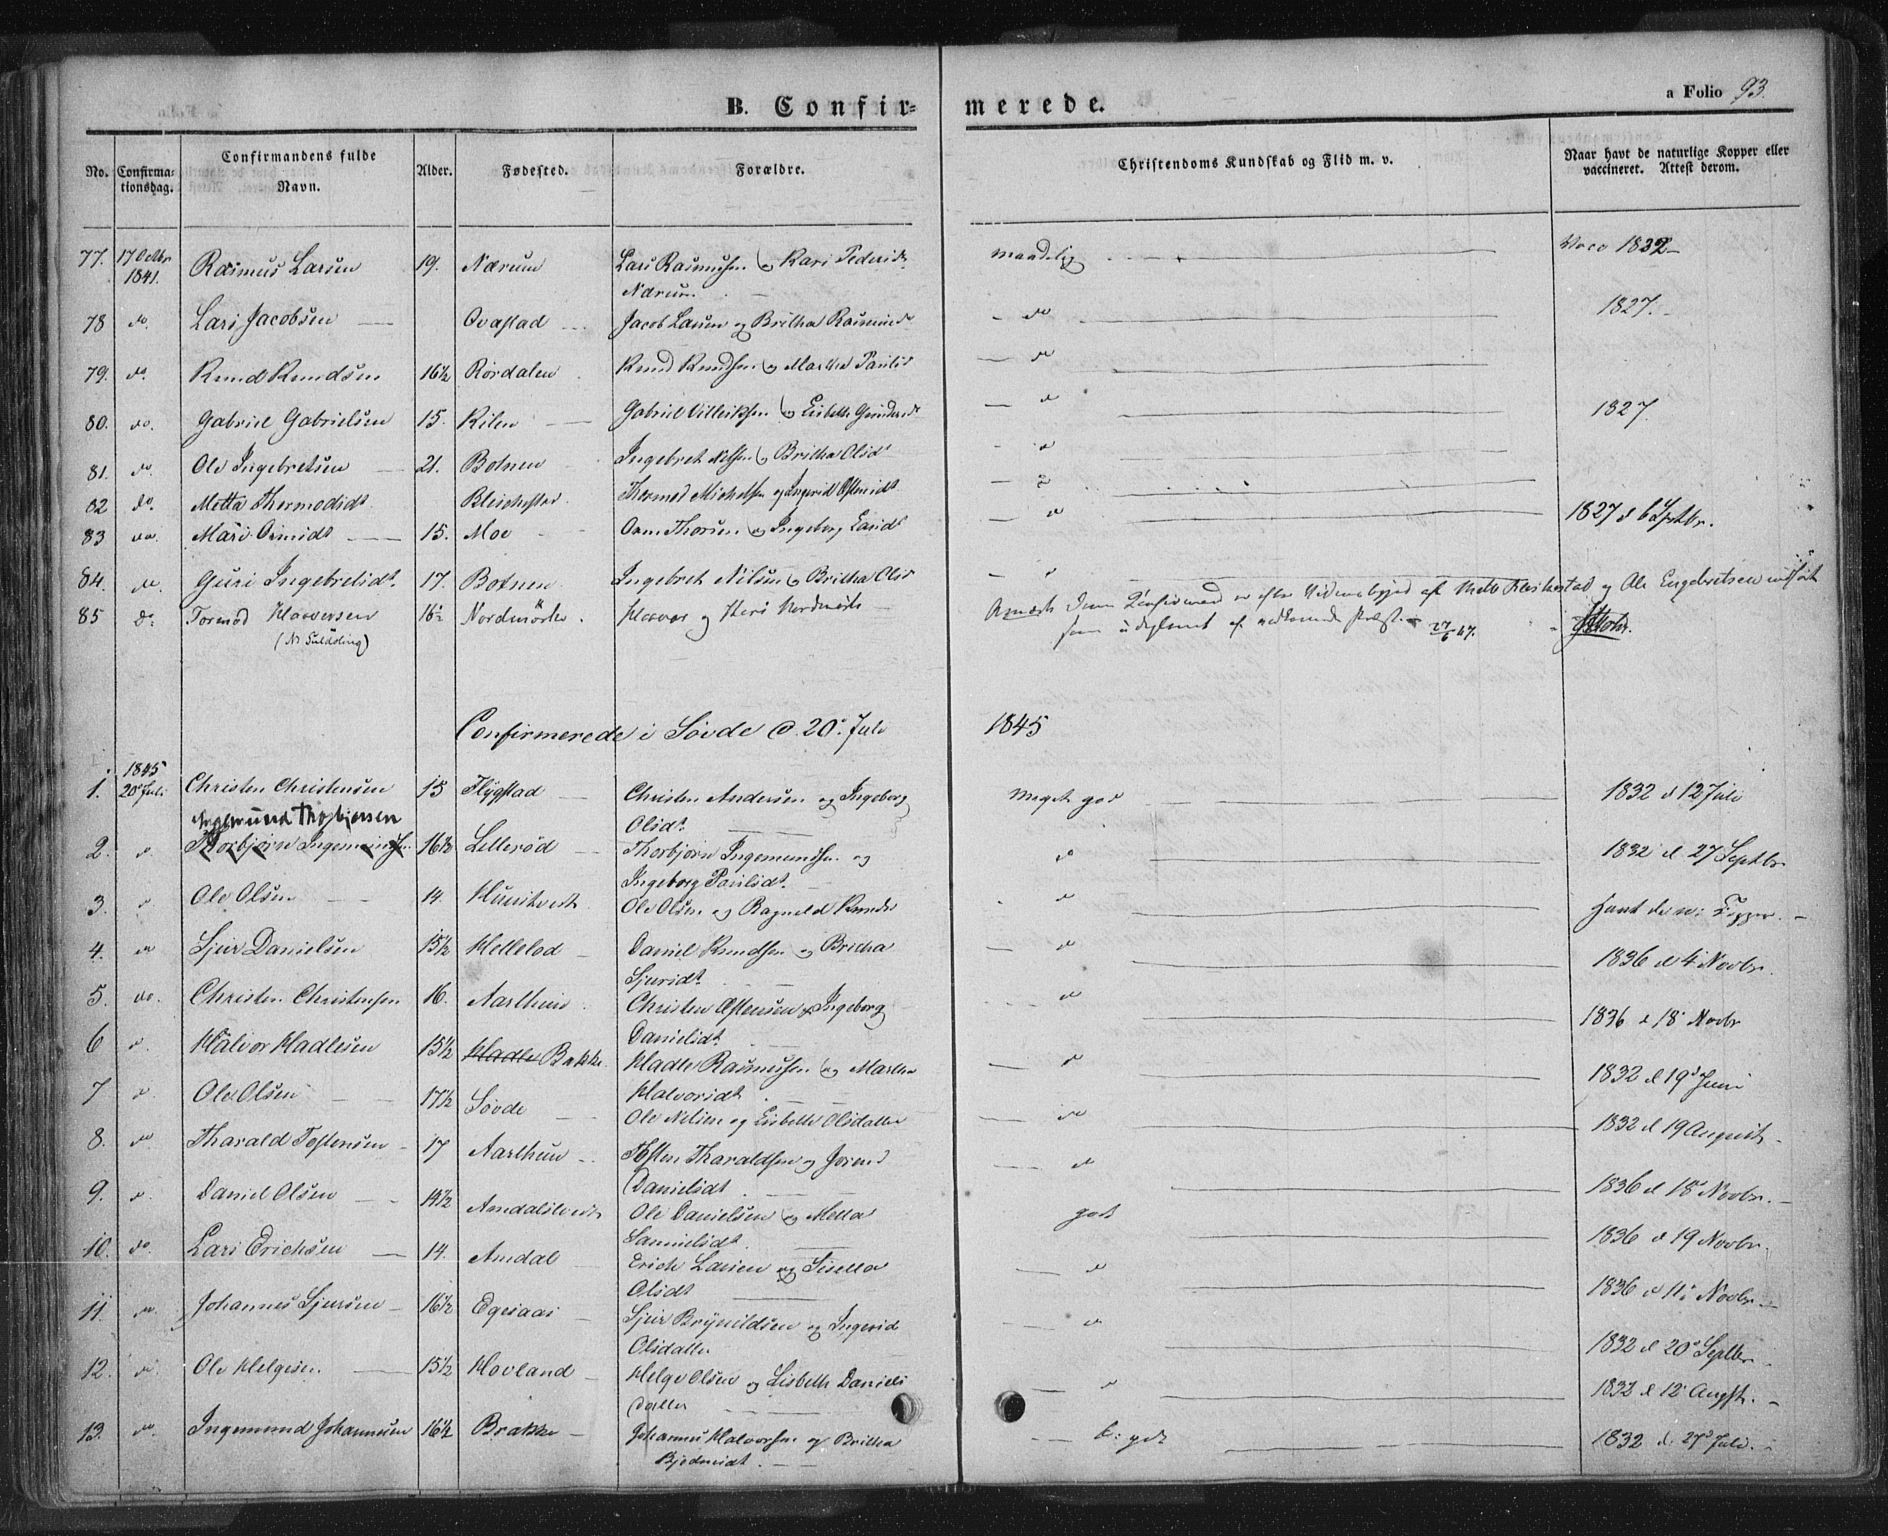 B. Confir= merede.
a Folio 93.
No. Confirma-tionsdag. Confirmandens fulde Navn. Alder. Fødested. Forældre. Christendoms Kundskab og Flid m. v. Naar havt de naturlige Kopper eller vaccineret. Attest derom.
77. 17 Octbr 1841. Rasmus Larsen 19. Nærum Lars Rasmussen og Kari Peders Nærum maadelig Vacc 1832
78 do. Lars Jacobsen Ovastad Jacob Larsen og Britha Rasmusd do 1827.
79. do. Knud Knudsen 16½ Rørdalen Knud Knudsen og Martha Paulsd do
80. do. Gabriel Gabrielsen 15. Kilen Gabriel Villeiksen og Lisbeth do 1827.
81. do. Ole Ingebretsen 21. Botnen Ingebret Nilsen og Britha Olsdt do
82 do. Metta Thormodsdt Thormod Michelsen og Ingerid
83 do. Mari Ormsdt 15. Moe Orm Thorsen og Ingeborg Larsdt do 1827 d 6 Septbr.
84. do. Guri Ingebretsdt 17. Botnen Ingebret Nilsen og Britha Olsd do
85 do Tormod Haavorsen 16½ Nordmørk Haavor og Nordmørk
(N: Suldøling)
Anmærk Denne Confirmand er efter af Mette og Ole Engebretsen indført
som udeglemt af vedkommende Præst. 27/6 47.
Confirmerede i Søvde d. 20de Juli 1845
1. 1845 20de Juli Christen Christensen 15 Flygstad Christen Andersen og Ingeborg Olsdt. meget god 1832 d 12 Juli
Ingemund Thorbjørsen
2. do Thorbjørn Ingemundsen 16½ Lellerød Thorbjørn Ingemundsen og Ingeborg Paulsdt. do 1832 d 27 Septbr
3. do Ole Olsen 14. Ole Olsen og Ragnild Knudsd do havt de n: Kopper.
4. do Sjur Danielsen 15½ Helleland Daniel Knudsen og Britha Sjursdt. do 1836 d 4 Novbr.
5. do. Christen Christensen 16. Aarthun Christen Østensen og Ingeborg Danielsdt. do 1836 d 18 Novbr
6 do. Halvor Hadlesen 15½ Hadle Bakke Hadle Rasmussen og Martha Halvorsdt. do 1832 d 19de Juni
7 do Ole Olsen 17½ Søvde Ole Nilsen og Lisbeth Olsdatter do 1832 d 19 August
8. do Tharald Testensen 17 Aarthun Østen Tharaldsen og Jorend Danielsdt do 1836 d 18 Novbr.
9. do. Daniel Olsen 14½ Amdalstvedt Ole Danielsen og Metta Samuelsdt. godt 1836 d 19 Novbr.
10. do. Lars Erichsen 14. Amdal Erich Larsen og Sisella Olsdt do 1836 d 11 Novbr.
11 do. Johannes Sjursen 16½ Egesaas Sjur Brynildsen og Ingerid Olsdatter do 1832 d 20de Septbr.
12. do Ole Helgesen 15½ Hovland Helge Olsen og Lisbeth Daniels datter do 1832 d 12 Augst.
13. do. Ingemund Johannesen 16½ Brakke Johannes Halvorsen og Britha b: godt 1832 d. 27de Juli.